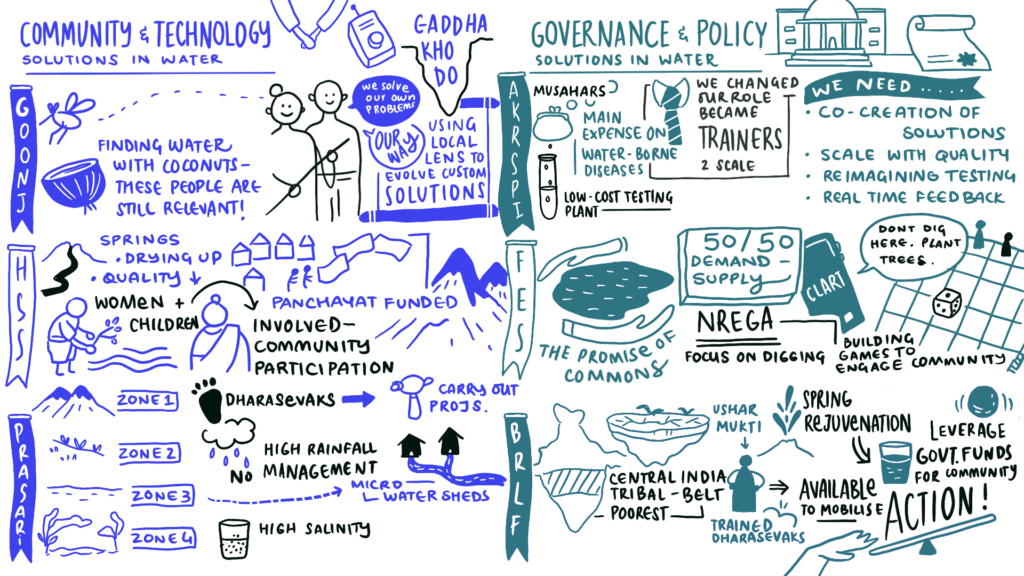 COMMUNITY & TECHNOLOGY
SOLUTIONS IN WATER
GADDHA
KHO
DO
GOONJ
FINDING WATER
WITH COCONUTS-
THESE PEOPLE ARE
STILL RELEVANT!
WE SOLVE
OUR OWN
PROBLEMS
OUR
WAY
USING
LOCAL
LENS TO
EVOLVE CUSTOM
SOLUTIONS
HSS
SPRINGS
• DRYING UP
• QUALITY ↓
WOMEN +
CHILDREN
PANCHAYAT FUNDED
INVOLVED-
COMMUNITY
PARTICIPATION
PRASARI
ZONE 1
DHARASEVAKS
CARRY OUT
PROJS.
ZONE 2
NO
HIGH RAINFALL
MANAGEMENT
ZONE 3
MICRO
WATERSHEDS
ZONE 4
HIGH SALINITY
GOVERNANCE & POLICY
SOLUTIONS IN WATER
AKRSPI
MUSAHARS
MAIN
EXPENSE ON
WATER-BORNE
DISEASES
LOW-COST TESTING
PLANT
WE CHANGED
OUR ROLE
BECAME
TRAINERS
2 SCALE
WE NEED.....
• CO-CREATION OF
SOLUTIONS
• SCALE WITH QUALITY
• REIMAGINING TESTING
• REAL TIME FEEDBACK
FES
THE PROMISE OF
COMMONS
50/50
DEMAND-
SUPPLY
NREGA
FOCUS ON DIGGING
CLART
DONT DIG
HERE. PLANT
TREES.
BUILDING
GAMES TO
ENGAGE COMMUNITY
BRLF
CENTRAL INDIA
TRIBAL-BELT
POOREST
USHAR
MUKTI
TRAINED
DHARASEVAKS
SPRING
REJUVENATION
AVAILABLE
TO MOBILISE
LEVERAGE
GOVT. FUNDS
FOR COMMUNITY
ACTION!